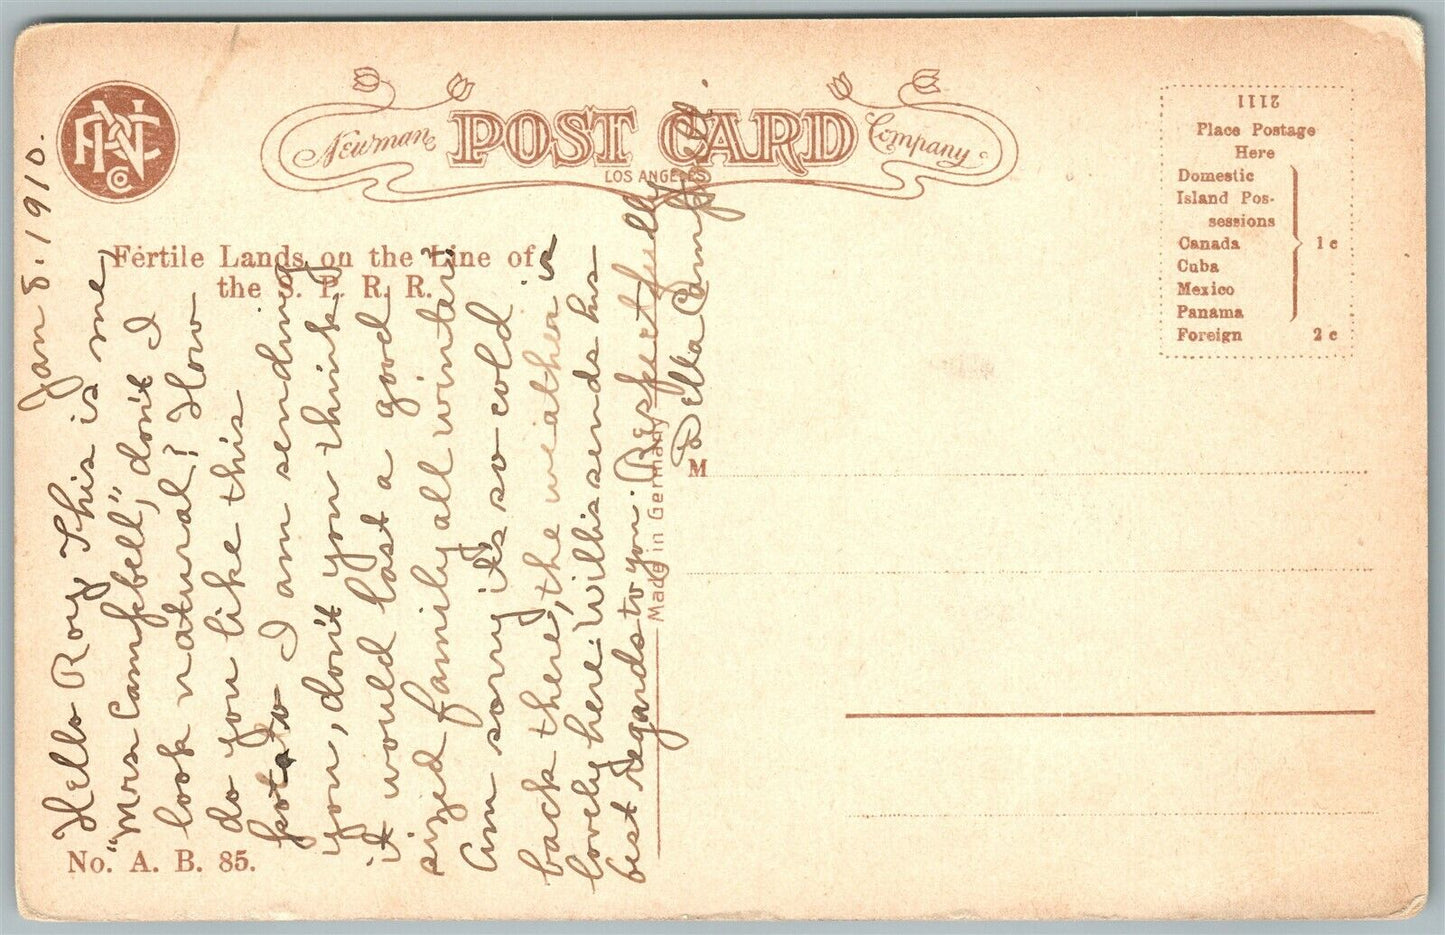 Newman POST CARD Company
LOS ANGELES
PNC Co
2111
Place Postage
Here
Domestic
Island Pos-
sessions
Canada
Cuba
Mexico
Panama
1c
Foreign 2c
Fertile Lands on the Line of
the S. P. R. R.
M
Made in Germany
No. A. B. 85.
Jan 8. 1910.
Hello Roy This is me,
"Mrs Campbell", don't I
look natural? How
do you like this
potato I am sending
you, don't you think
it would last a good
sized family all winter.
Am sorry it's so cold
back there, the weather is
lovely here. Willis sends his
best regards to you. Respectfully
Della Campbell.